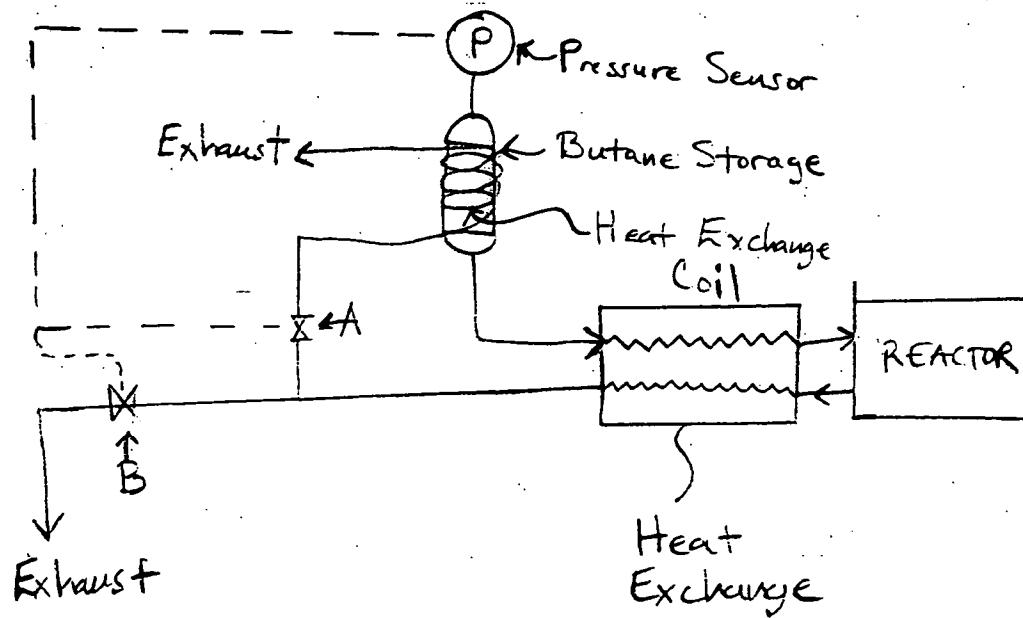 P
Pressure Sensor
Exhaust
Butane Storage
Heat Exchange
Coil
A
REACTOR
B
Exhaust
Heat
Exchange